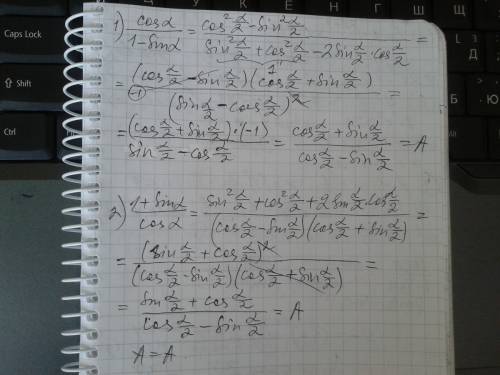 Caps Lock
⇧ Shift
Ctrl
Б
Ю
1) cosα/(1-sinα) = (cos² α/2 - sin² α/2)/(sin² α/2 + cos² α/2 - 2sin α/2 · cos α/2) =
1
= (cos α/2 - sin α/2)(cos α/2 + sin α/2)/(sin α/2 - cos α/2)² =
(-1)
= (cos α/2 + sin α/2)·(-1)/(sin α/2 - cos α/2) = (cos α/2 + sin α/2)/(cos α/2 - sin α/2) = A
2) (1+sinα)/cosα = (sin² α/2 + cos² α/2 + 2sin α/2 cos α/2)/((cos α/2 - sin α/2)(cos α/2 + sin α/2)) =
= (sin α/2 + cos α/2)²/((cos α/2 - sin α/2)(cos α/2 + sin α/2)) =
= (sin α/2 + cos α/2)/(cos α/2 - sin α/2) = A
A = A